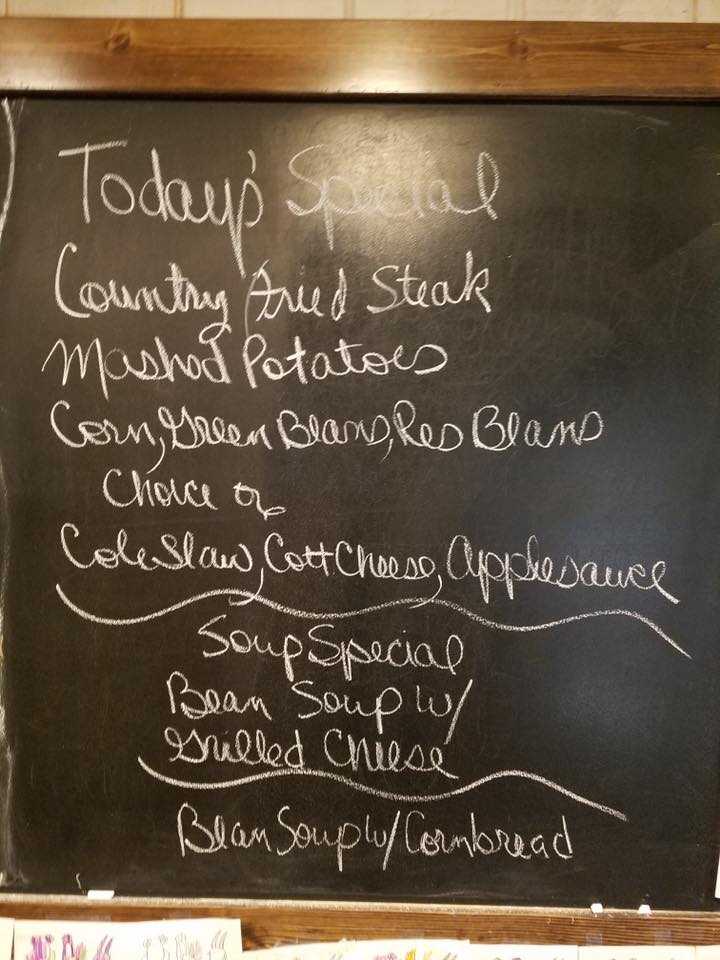 Today's Special
Country Fried Steak
Mashed Potatoes
Corn, Green Beans, Red Beans
Choice of
Cole Slaw, Cott Cheese, Applesauce
Soup Special
Bean Soup w/
Grilled Cheese
Bean Soup w/ Cornbread